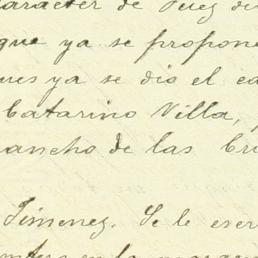 caracter de Juez de
que ya se propone
ues ya se dio el ca
Catarino Villa,
ancho de las Cru
Jimenez. Se le escr